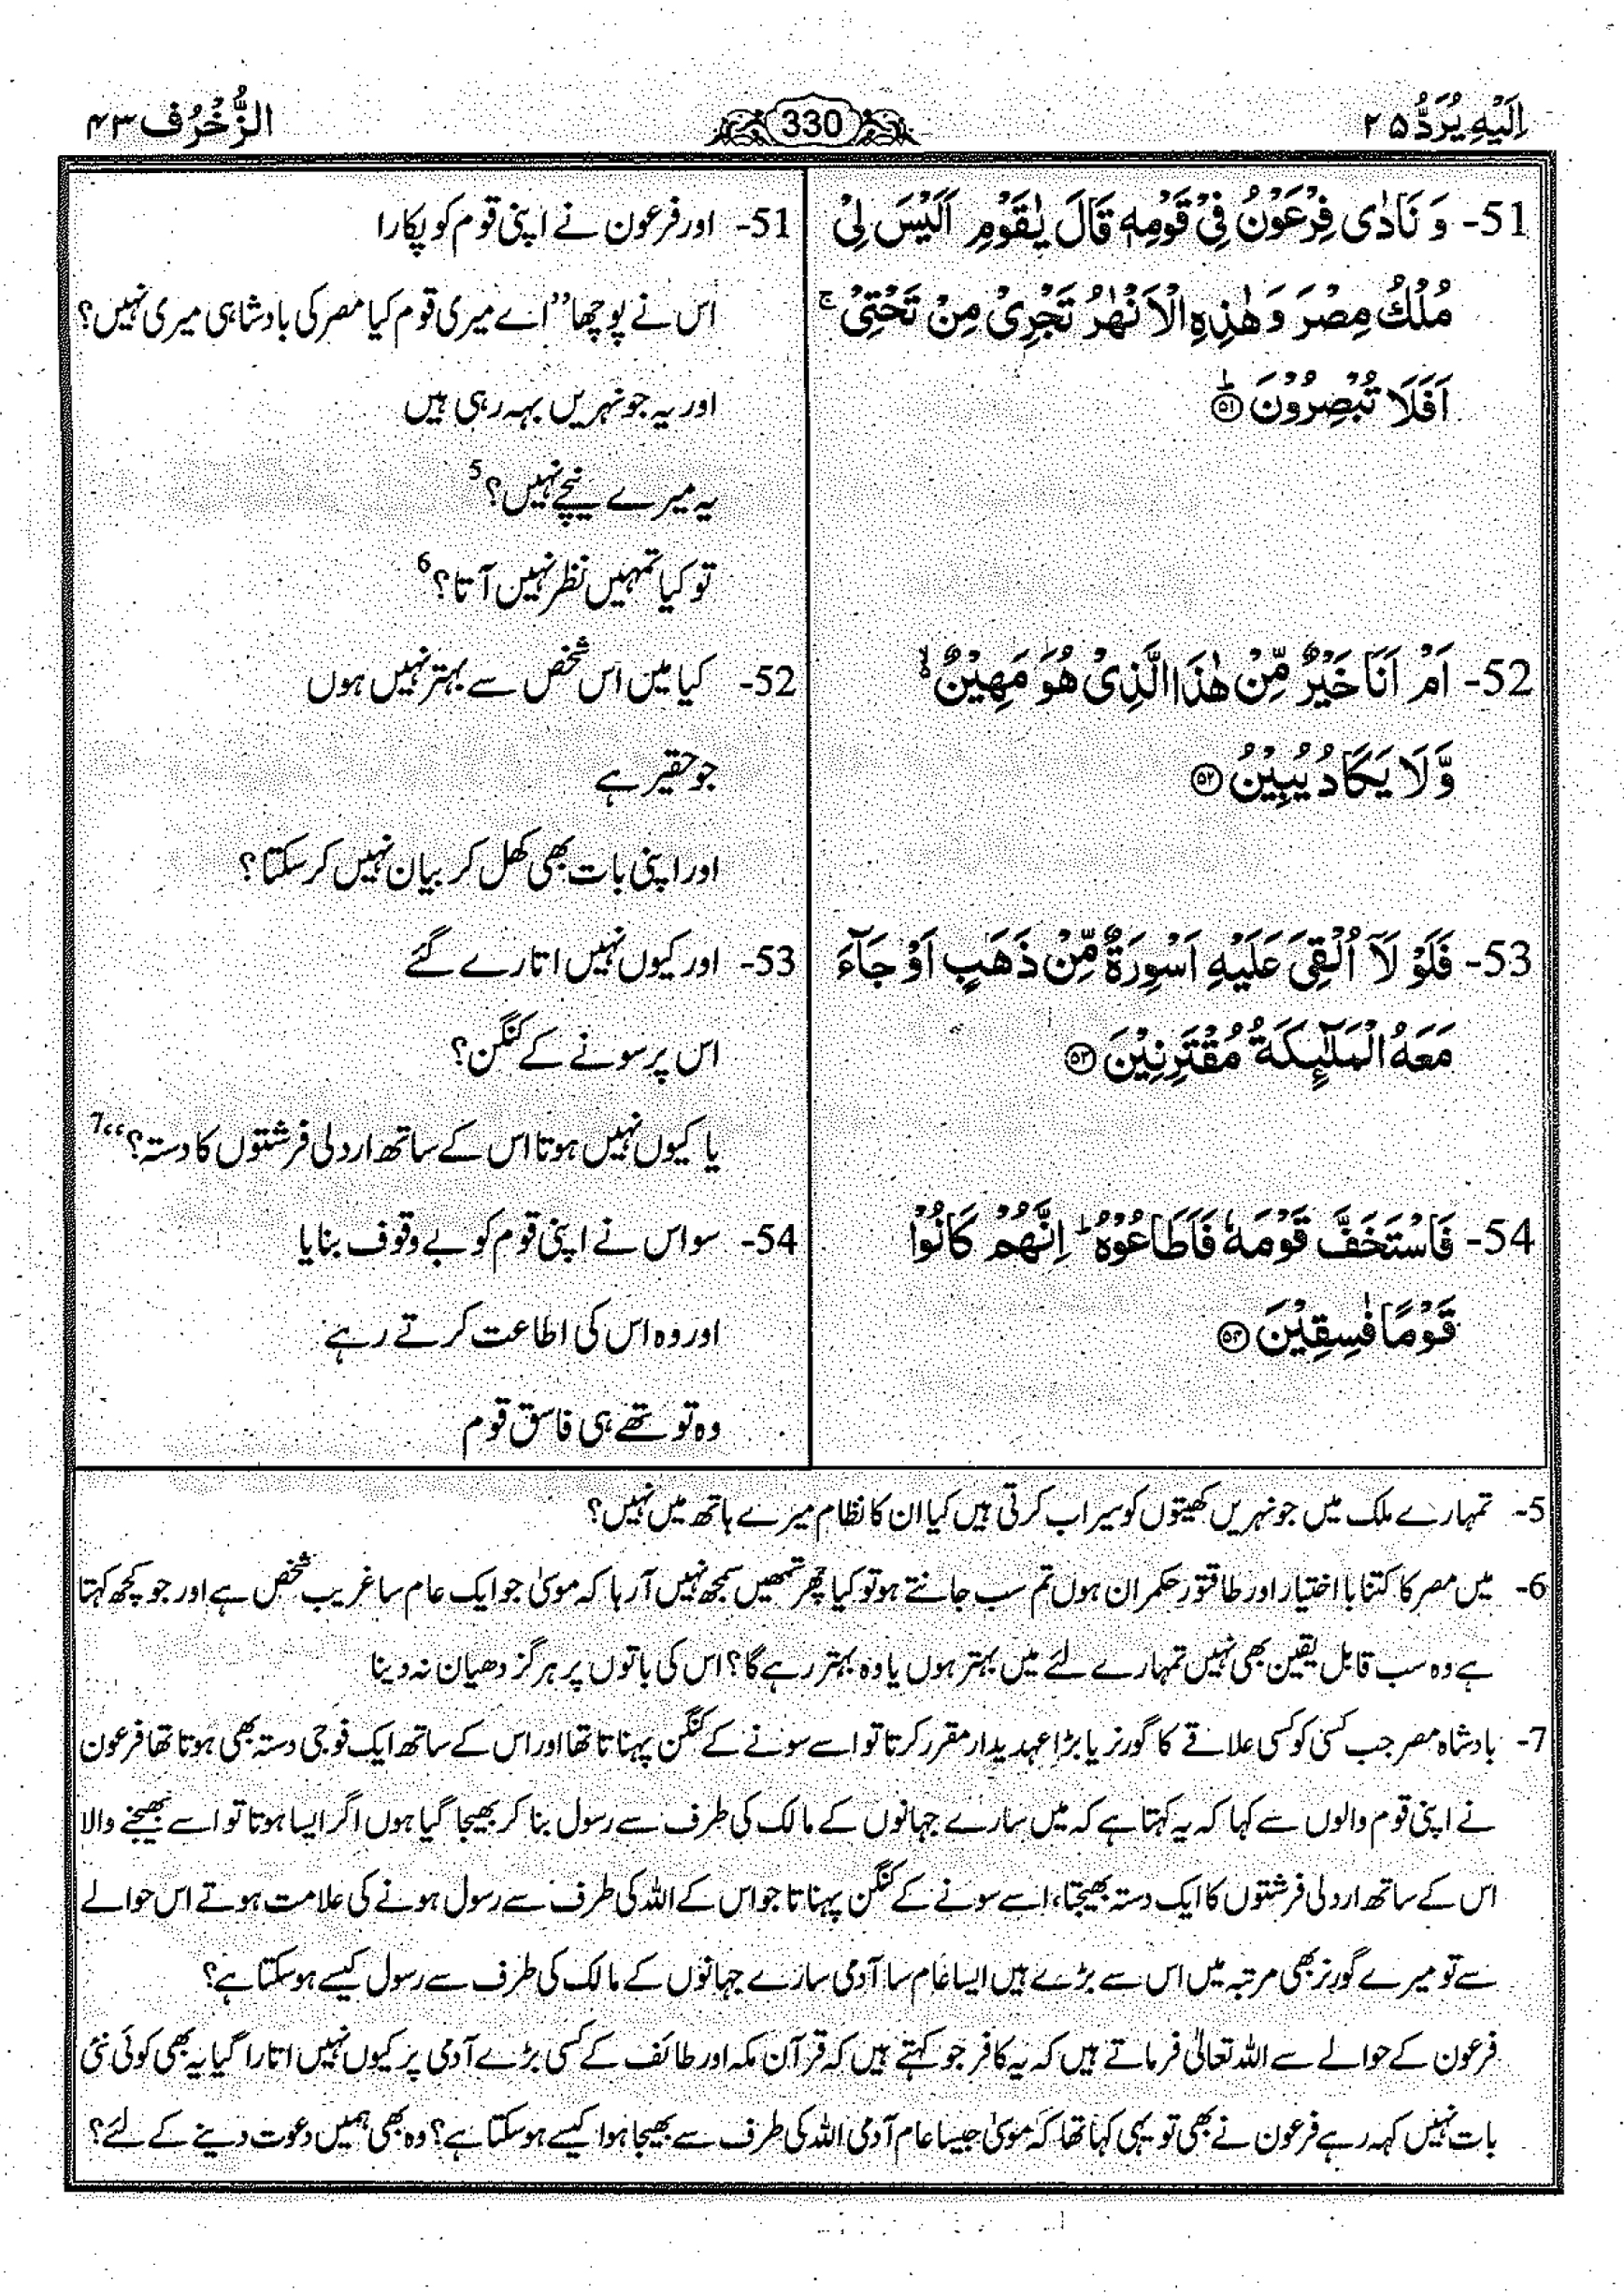 اِلَيْهِ يُرَدُّ ۲۵
330
الزُّخْرُف ۴۳
51- وَ نَادٰى فِرْعَوْنُ فِيْ قَوْمِهٖ قَالَ يٰقَوْمِ اَلَيْسَ لِيْ
مُلْكُ مِصْرَ وَ هٰذِهِ الْاَنْهٰرُ تَجْرِيْ مِنْ تَحْتِيْ ۚ
اَفَلَا تُبْصِرُوْنَ ؕ ۵۱
52- اَمْ اَنَا خَيْرٌ مِّنْ هٰذَا الَّذِيْ هُوَ مَهِيْنٌ ۙ
وَّلَا يَكَادُ يُبِيْنُ ۵۲
53- فَلَوْ لَآ اُلْقِيَ عَلَيْهِ اَسْوِرَةٌ مِّنْ ذَهَبٍ اَوْ جَآءَ
مَعَهُ الْمَلٰٓئِكَةُ مُقْتَرِنِيْنَ ۵۳
54- فَاسْتَخَفَّ قَوْمَهٗ فَاَطَاعُوْهُ ؕ اِنَّهُمْ كَانُوْا
قَوْمًا فٰسِقِيْنَ ۵۴
51- اور فرعون نے اپنی قوم کو پکارا
اس نے پوچھا ”اے میری قوم کیا مصر کی بادشاہی میری نہیں؟
اور یہ جو نہریں بہہ رہی ہیں
یہ میرے نیچے نہیں؟ 5
تو کیا تمہیں نظر نہیں آتا؟ 6
52- کیا میں اس شخص سے بہتر نہیں ہوں
جو حقیر ہے
اور اپنی بات بھی کھل کر بیان نہیں کر سکتا؟
53- اور کیوں نہیں اتارے گئے
اس پر سونے کے کنگن؟
یا کیوں نہیں ہوتا اس کے ساتھ اردلی فرشتوں کا دستہ؟“ 7
54- سو اس نے اپنی قوم کو بے وقوف بنایا
اور وہ اس کی اطاعت کرتے رہے
وہ تو تھے ہی فاسق قوم
5- تمہارے ملک میں جو نہریں کھیتوں کو سیراب کرتی ہیں کیا ان کا نظام میرے ہاتھ میں نہیں؟
6- میں مصر کا کتنا با اختیار اور طاقتور حکمران ہوں تم سب جانتے ہو تو کیا پھر تمھیں سمجھ نہیں آ رہا کہ موسیٰ جو ایک عام سا غریب شخص ہے اور جو کچھ کہتا
ہے وہ سب قابل یقین بھی نہیں تمہارے لئے میں بہتر ہوں یا وہ بہتر رہے گا؟ اس کی باتوں پر ہرگز دھیان نہ دینا
7- بادشاہ مصر جب کسی کو کسی علاقے کا گورنر یا بڑا عہدیدار مقرر کرتا تو اسے سونے کے کنگن پہناتا تھا اور اس کے ساتھ ایک فوجی دستہ بھی ہوتا تھا فرعون
نے اپنی قوم والوں سے کہا کہ یہ کہتا ہے کہ میں سارے جہانوں کے مالک کی طرف سے رسول بنا کر بھیجا گیا ہوں اگر ایسا ہوتا تو اسے بھیجنے والا
اس کے ساتھ اردلی فرشتوں کا ایک دستہ بھیجتا، اسے سونے کے کنگن پہناتا جو اس کے اللہ کی طرف سے رسول ہونے کی علامت ہوتے اس حوالے
سے تو میرے گورنر بھی مرتبہ میں اس سے بڑے ہیں ایسا عام سا آدمی سارے جہانوں کے مالک کی طرف سے رسول کیسے ہو سکتا ہے؟
فرعون کے حوالے سے اللہ تعالیٰ فرماتے ہیں کہ یہ کافر جو کہتے ہیں کہ قرآن مکہ اور طائف کے کسی بڑے آدمی پر کیوں نہیں اتارا گیا یہ بھی کوئی نئی
بات نہیں کہہ رہے فرعون نے بھی تو یہی کہا تھا کہ موسیٰ جیسا عام آدمی اللہ کی طرف سے بھیجا ہوا کیسے ہو سکتا ہے؟ وہ بھی ہمیں دعوت دینے کے لئے؟